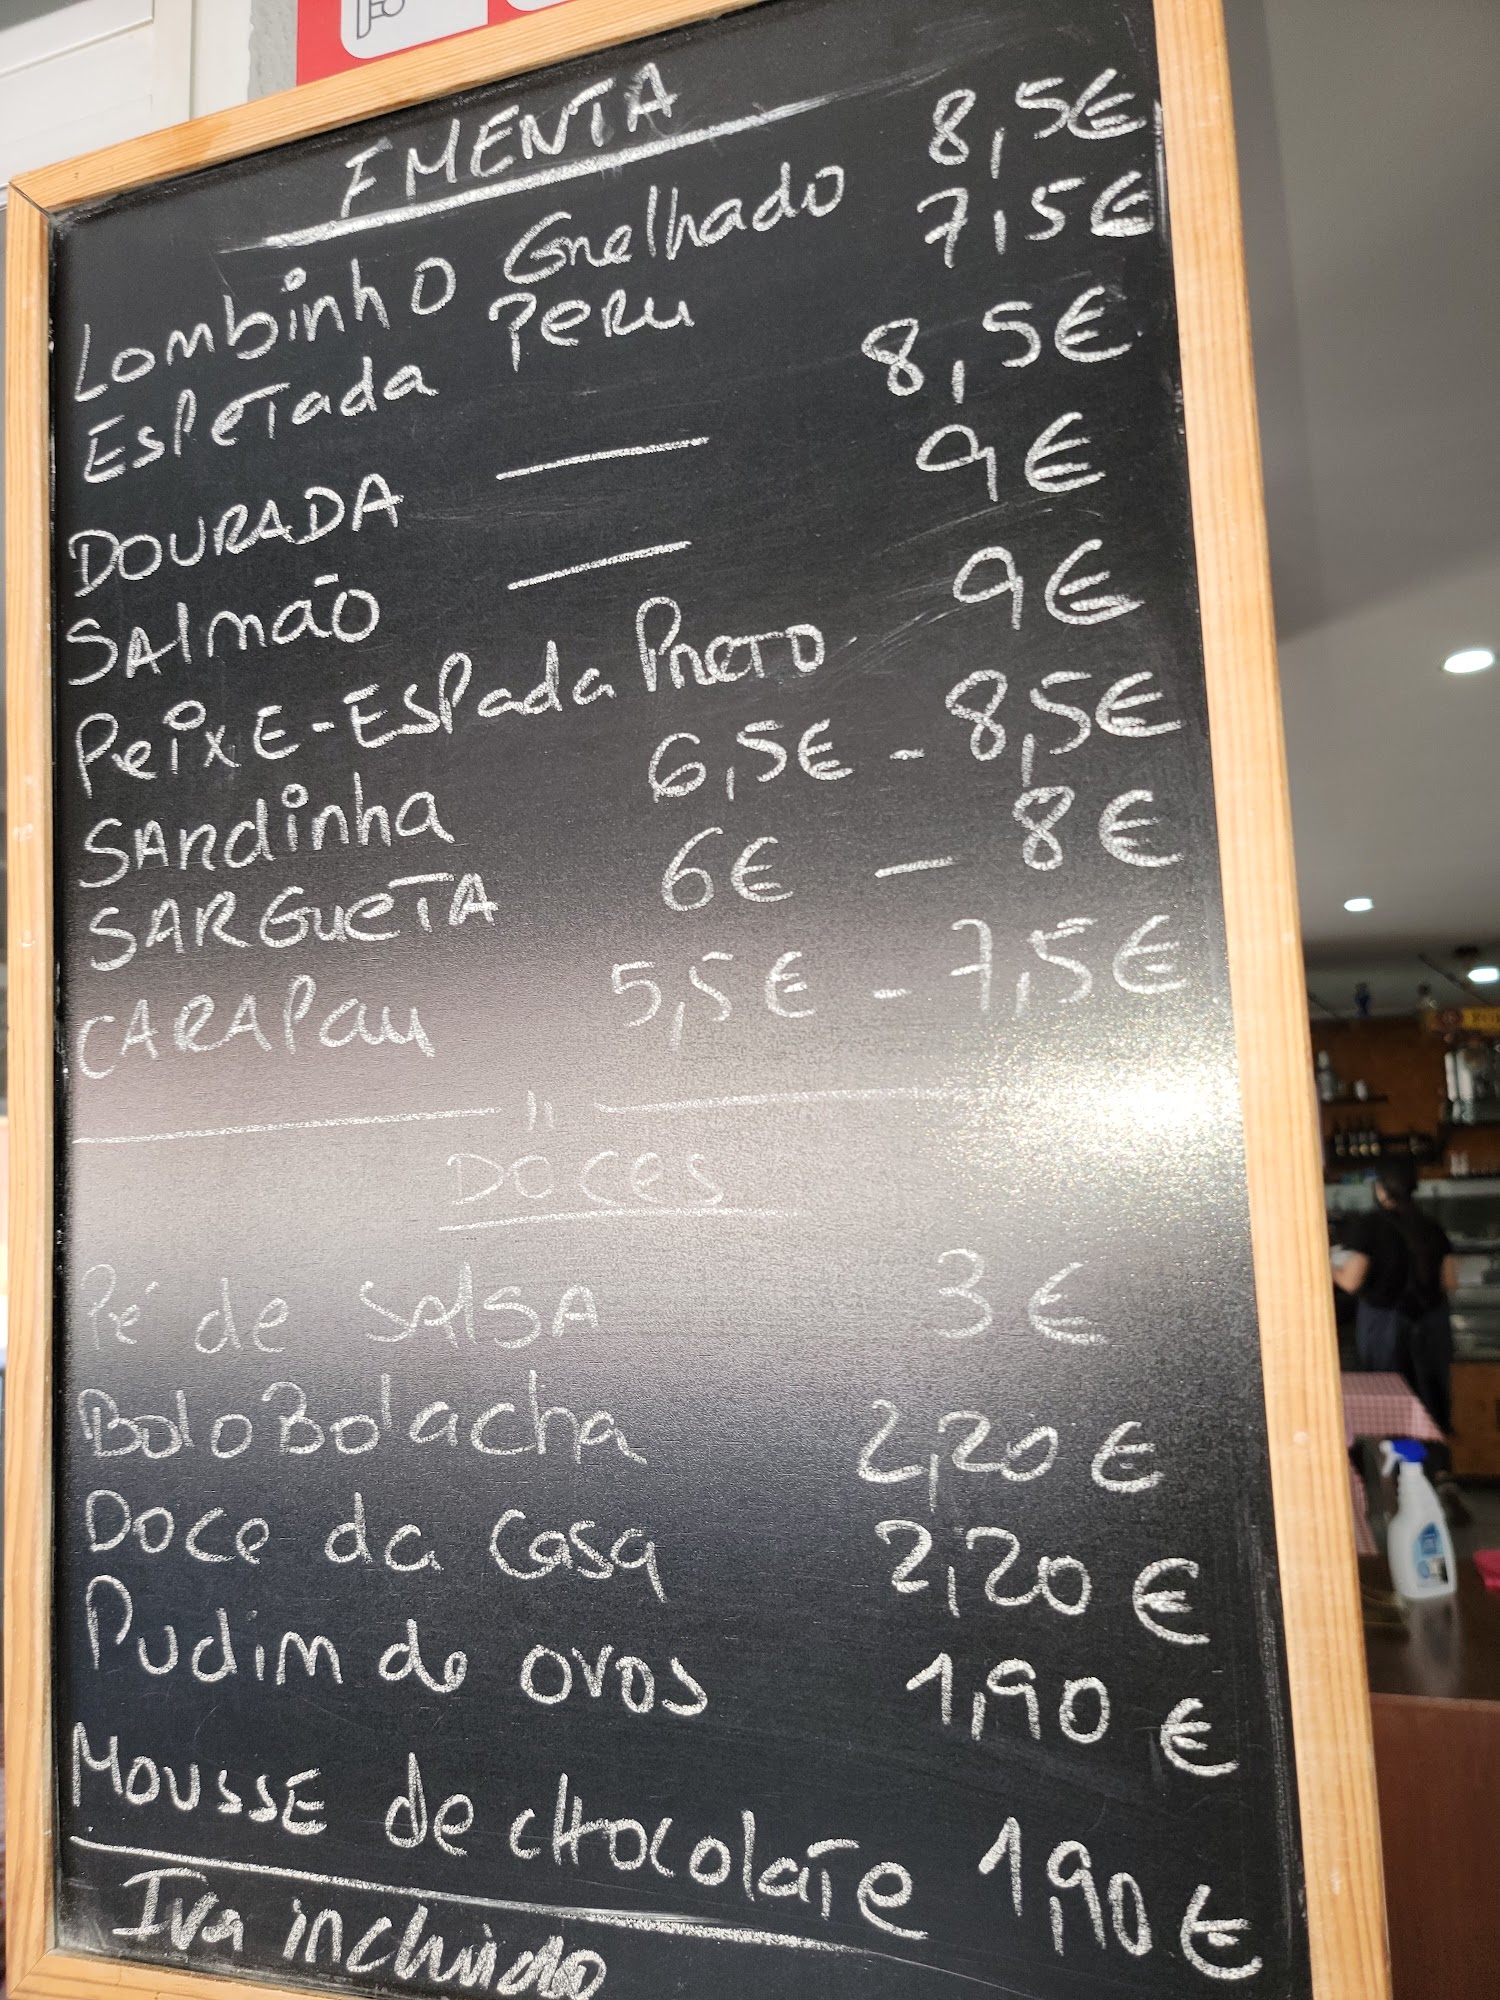 EMENTA
Lombinho Grelhado 8,5€
Espetada Peru 7,5€
DOURADA — 8,5€
SAlmão — 9€
Peixe-Espada Preto 9€
SArdinha 6,5€ - 8,5€
SARGuetA 6€ - 8€
CARAPau 5,5€ - 7,5€
— " —
Doces
Pé de SAlsA 3€
Bolo Bolacha 2,20€
Doce da Casa 2,20€
Pudim de ovos 1,90€
Mousse de cHocolate 1,90€
Iva incluido